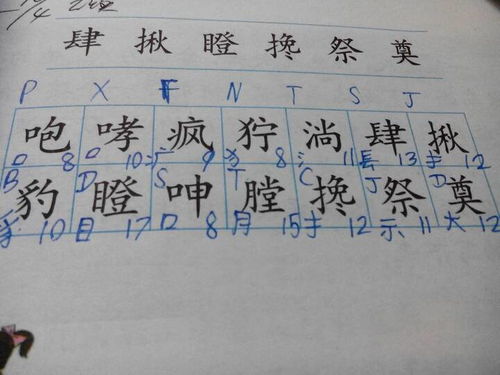 肆 揪 瞪 搀 祭 奠
P X F N T S J
咆 哮 疯 狞 淌 肆 揪
口 8 口 10 疒 9 犭 8 氵 11 镸 13 扌 12
B D S T C J D
豹 瞪 呻 膛 搀 祭 奠
豸 10 目 17 口 8 月 15 扌 12 示 11 大 12